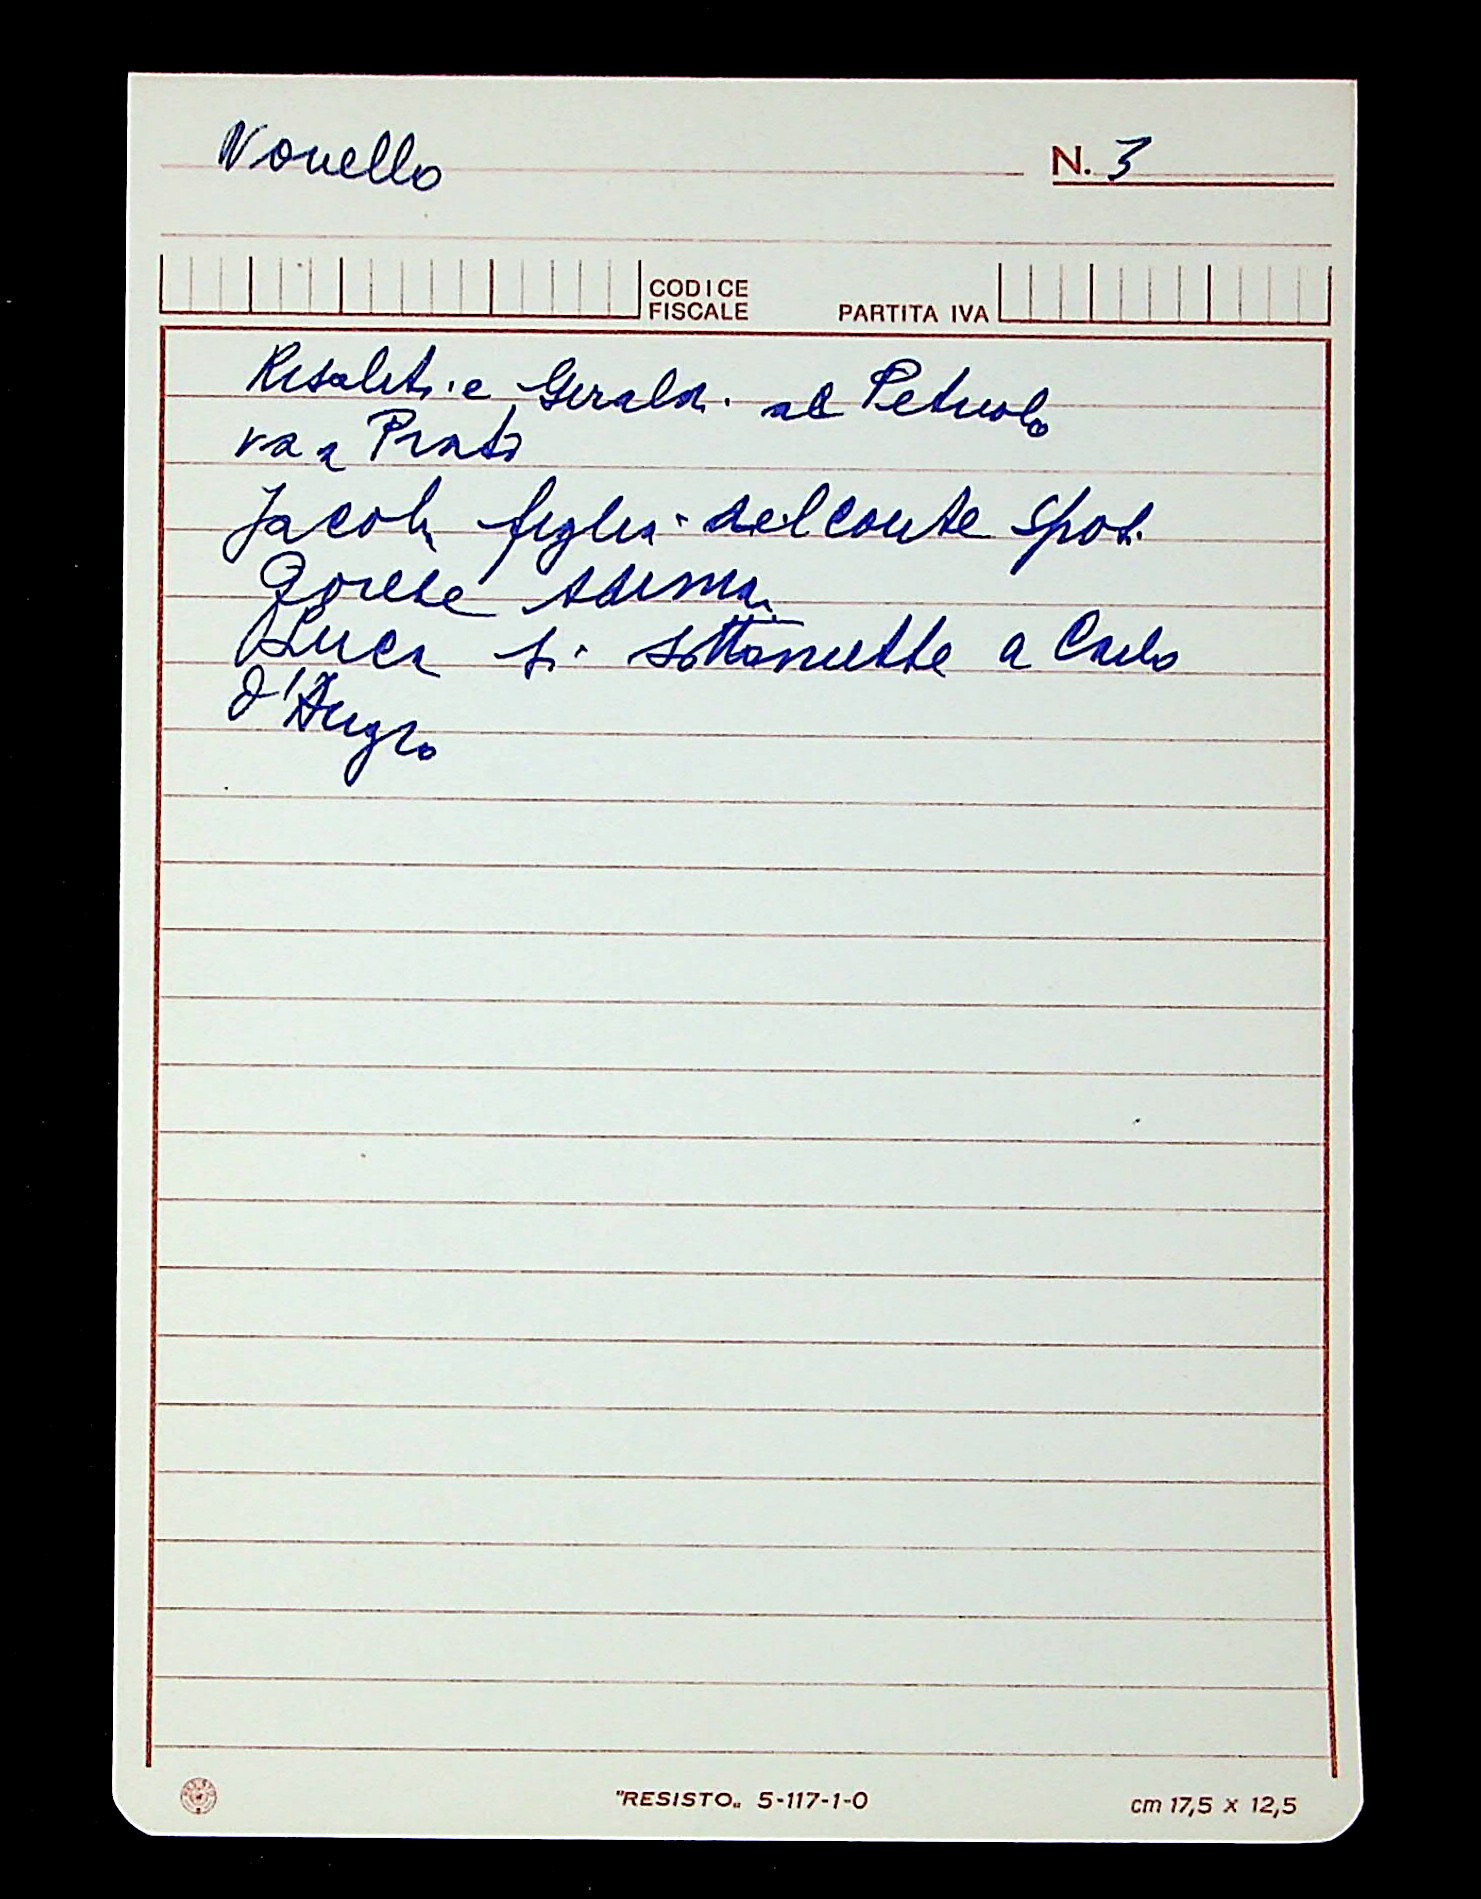 Novello
N. 3
CODICE
FISCALE
PARTITA IVA
Risaliti e Gerald. al Petruolo
va a Prato
Jacob. figlia del conte spos.
Gorese
Luca si sottomette a Carlo
d'Angro
"RESISTO„ 5-117-1-0
cm 17,5 x 12,5